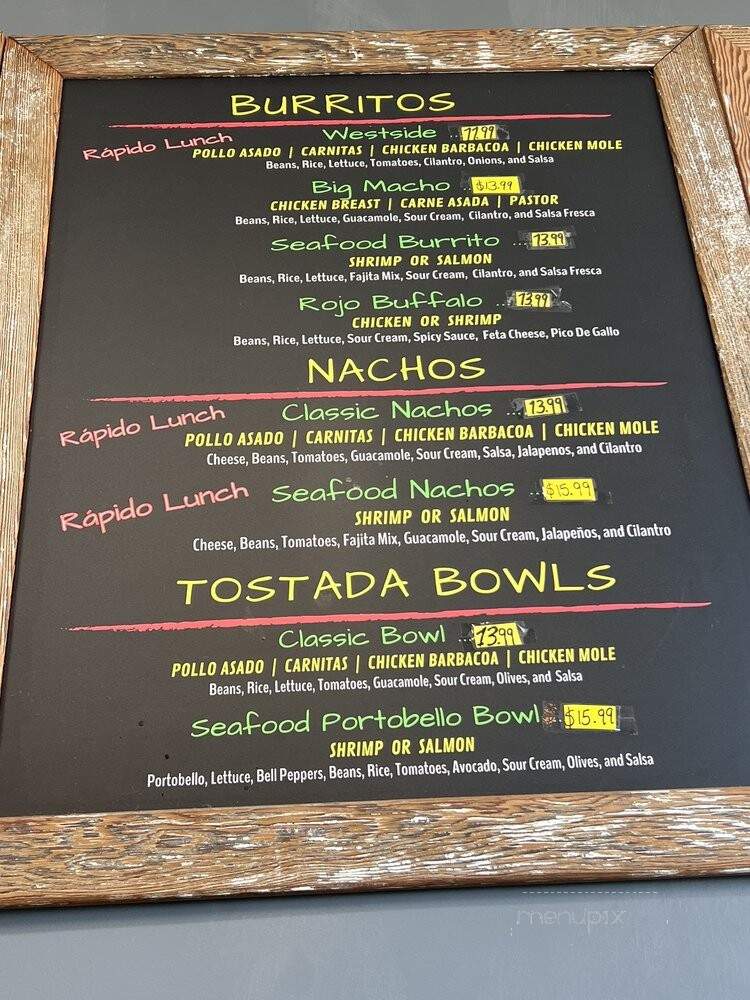 BURRITOS
Rápido Lunch
Westside ... 11.99
POLLO ASADO | CARNITAS | CHICKEN BARBACOA | CHICKEN MOLE
Beans, Rice, Lettuce, Tomatoes, Cilantro, Onions, and Salsa
Big Macho ... $13.99
CHICKEN BREAST | CARNE ASADA | PASTOR
Beans, Rice, Lettuce, Guacamole, Sour Cream, Cilantro, and Salsa Fresca
Seafood Burrito ... 13.99
SHRIMP OR SALMON
Beans, Rice, Lettuce, Fajita Mix, Sour Cream, Cilantro, and Salsa Fresca
Rojo Buffalo ... 13.99
CHICKEN OR SHRIMP
Beans, Rice, Lettuce, Sour Cream, Spicy Sauce, Feta Cheese, Pico De Gallo
NACHOS
Rápido Lunch
Classic Nachos ... 13.99
POLLO ASADO | CARNITAS | CHICKEN BARBACOA | CHICKEN MOLE
Cheese, Beans, Tomatoes, Guacamole, Sour Cream, Salsa, Jalapenos, and Cilantro
Rápido Lunch
Seafood Nachos ... $15.99
SHRIMP OR SALMON
Cheese, Beans, Tomatoes, Fajita Mix, Guacamole, Sour Cream, Jalapeños, and Cilantro
TOSTADA BOWLS
Classic Bowl ... 13.99
POLLO ASADO | CARNITAS | CHICKEN BARBACOA | CHICKEN MOLE
Beans, Rice, Lettuce, Tomatoes, Guacamole, Sour Cream, Olives, and Salsa
Seafood Portobello Bowl $15.99
SHRIMP OR SALMON
Portobello, Lettuce, Bell Peppers, Beans, Rice, Tomatoes, Avocado, Sour Cream, Olives, and Salsa
menupix